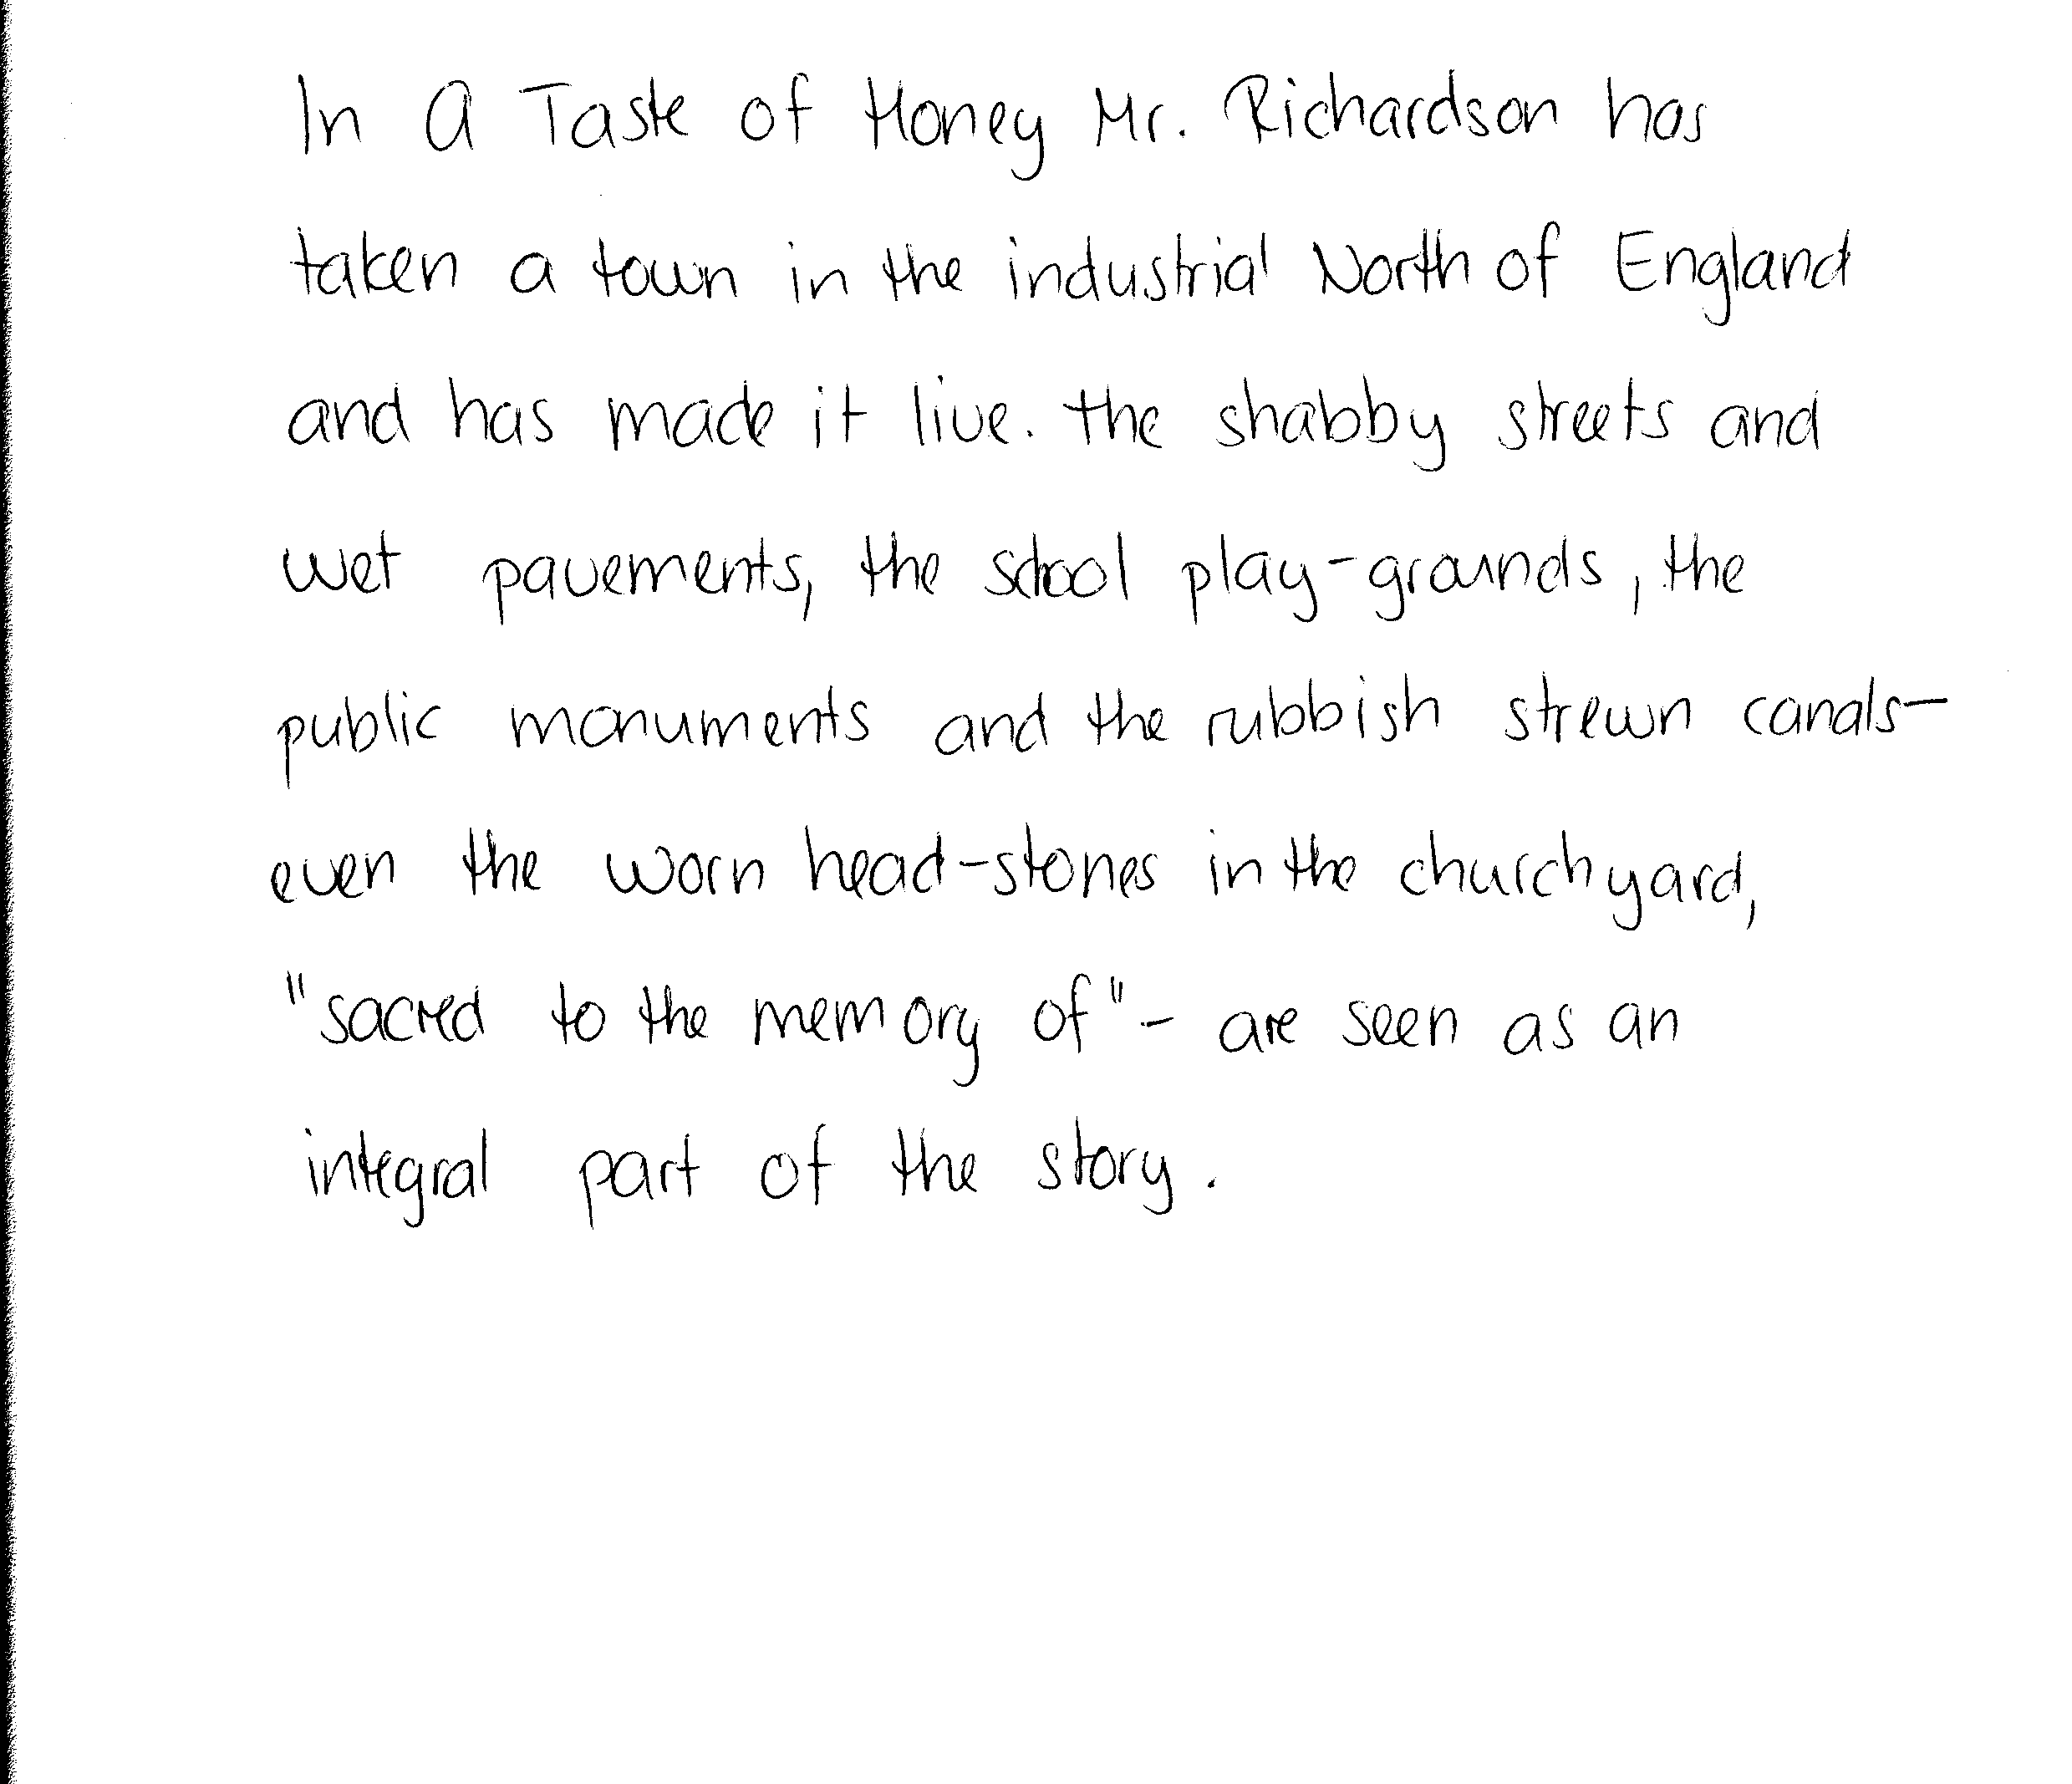 In A Taste of Honey Mr. Richardson has
taken a town in the industrial North of England
and has made it live. the shabby streets and
wet pavements, the school play-grounds, the
public monuments and the rubbish strewn canals-
even the worn head-stones in the churchyard,
"sacred to the memory of"- are seen as an
integral part of the story.